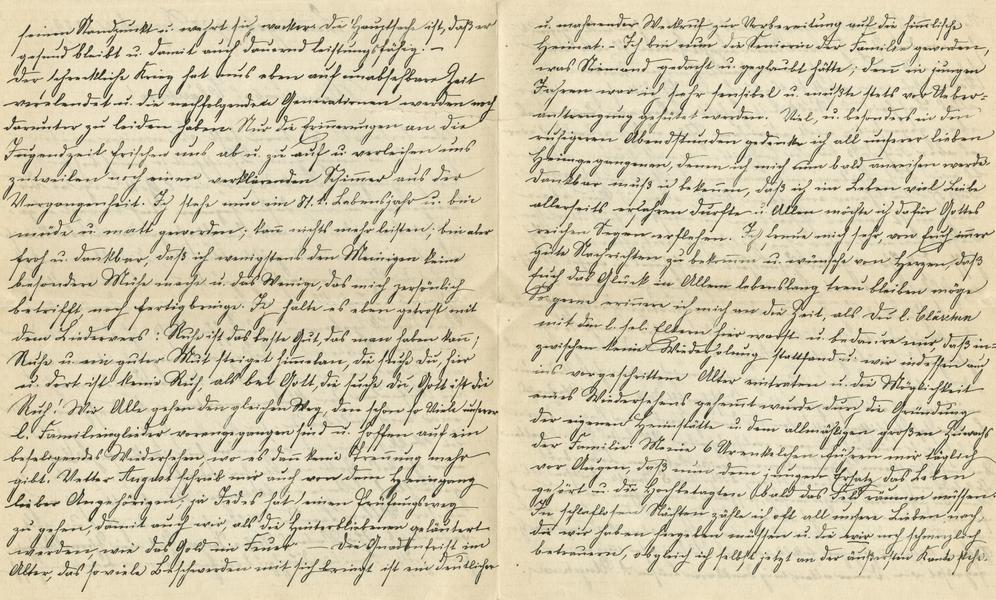 seinen Standpunkt u. wehrt sich wacker. Die Hauptsache ist, daß er
gesund bleibt u. damit auch dauernd leistungsfähig! –
Der schreckliche Krieg hat uns eben auf unabsehbare Zeit
verelendet u. die nachfolgenden Generationen werden noch
darunter zu leiden haben. Nur die Erinnerungen an die
Jugendzeit frischen uns ab u. zu auf u. verleihen uns
zuweilen noch einen verklärenden Schimmer aus der
Vergangenheit. Ich stehe nun im 81. t. Lebensjahr u. bin
müde u. matt geworden; kann nichts mehr leisten; bin aber
froh u. dankbar, daß ich wenigstens den Meinigen keine
besondere Mühe mache u. das Wenige, das mich persönlich
betrifft, noch fertigbringe. Ich halte es eben getrost mit
dem Liedervers: Ruhe ist das beste Gut, das man haben kann;
Ruhe u. ein guter Mut steiget himmelan, die suche Du, hier
u. dort ist keine Ruh, als bei Gott, die suche Du, Gott ist die
Ruh! Wir Alle gehen den gleichen Weg, den schon so Viele unserer
l. Familienglieder vorangegangen sind u. hoffen auf ein
beseligendes Wiedersehen, wo es dann keine Trennung mehr
gibt. Vetter August schrieb mir auch von dem Heimgang
lieber Angehörigen, ja Jedes hat seinen Prüfungsweg
zu gehen, damit auch wir, als die Hinterbliebenen geläutert
werden, wie das Gold im Feuer. – Die Gnadenfrist im
Alter, das so viele Beschwerden mit sich bringt ist ein deutlicher
u. mahnender Weckruf zur Vorbereitung auf die himmlische
Heimat. – Ich bin nun die Seniorin der Familie geworden,
was Niemand gedacht u. geglaubt hätte; denn in jungen
Jahren war ich sehr sensibel u. mußte stets vor Ueber-
anstrengung gehütet werden. Viel, u. besonders in den
ruhigen Abendstunden gedenke ich all unserer lieben
Heimgegangenen, denen ich mich nun bald anreihen werde
Dankbar muß ich bekennen, daß ich im Leben viel Liebe
allerseits erfahren durfte u. Allen möchte ich dafür Gottes
reichen Segen erflehen. Ich freue mich sehr, von Euch immer
gute Nachrichten zu bekommen u. wünsche von Herzen, daß
Euch das Glück in Allem lebenslang treu bleiben möge
So gerne erinnere ich mich an die Zeit, als Du l. Clärchen
mit den l. sel. Eltern hier warst u. bedaure nur daß in-
zwischen keine Wiederholung stattfand u. wir indessen auch
ins vorgeschrittene Alter eintraten u. die Möglichkeit
eines Wiedersehens gehemmt wurde durch die Gründung
der eigenen Heimstätte u. dem allmäligen großen Zuwachs
der Familie. Meine 6 Urenkelchen führen mir täglich
vor Augen, daß nun dem jungen Ersatz das Leben
gehört u. die Hochbetagten bald das Feld räumen müssen
In schlaflosen Nächten zähle ich oft all unsere Lieben nach,
die wir haben hergeben müssen u. die wir noch schmerzlich
betrauern, obgleich ich selbst jetzt an der äußersten Kante stehe.